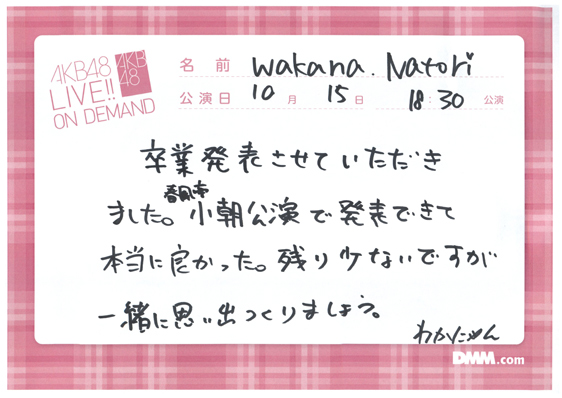 AKB48
LIVE!!
ON DEMAND
AKB
48
名前 Wakana.Natori
公演日 10月 15日 18:30 公演
卒業発表させていただき
ました。春風亭小朝公演で発表できて
本当に良かった。残り少ないですが
一緒に思い出つくりましょう。
わかにゃん
DMM.com